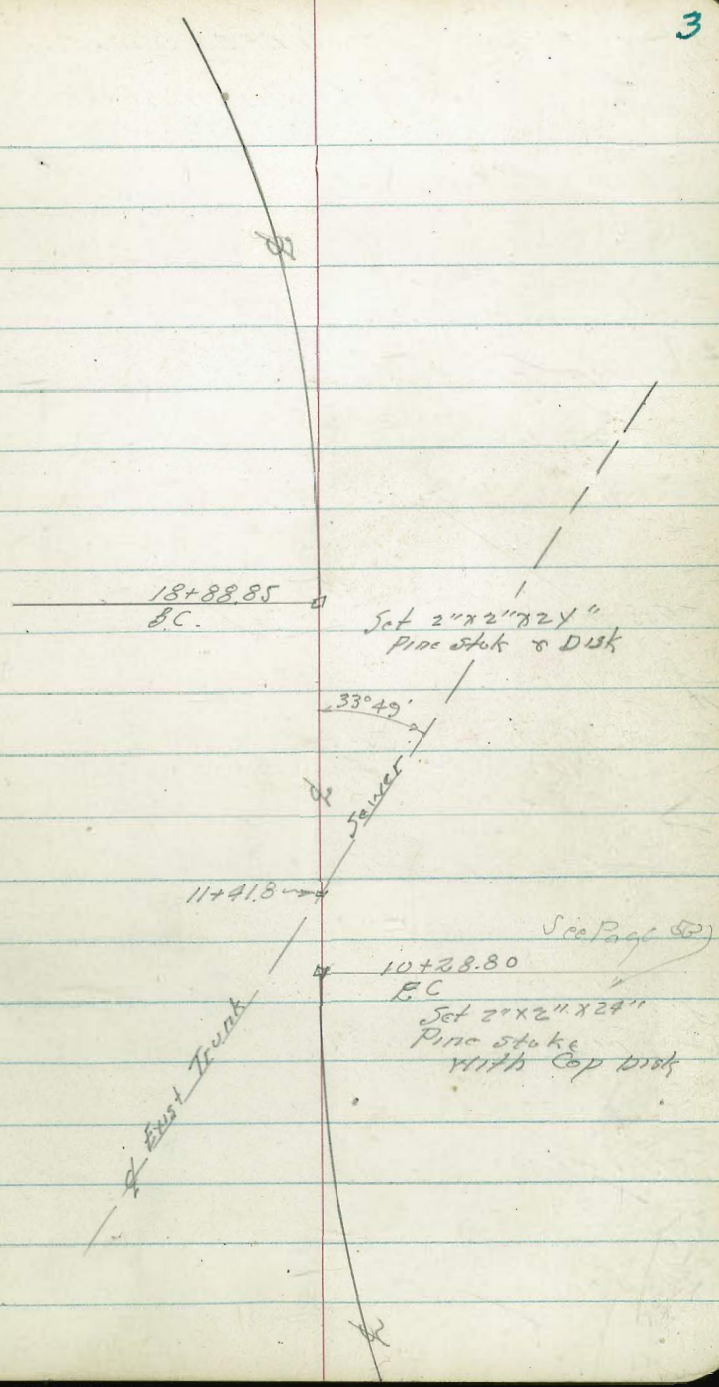 3
℄
18+88.85
B.C.
Set 2"x2"x24"
Pine Stak & Disk
33°49'
℄
Sewer
11+41.8
See Page
10+28.80
E C
Set 2"x2"x24"
Pine stake
With Cop Disk
℄ Exist Trunk
℄